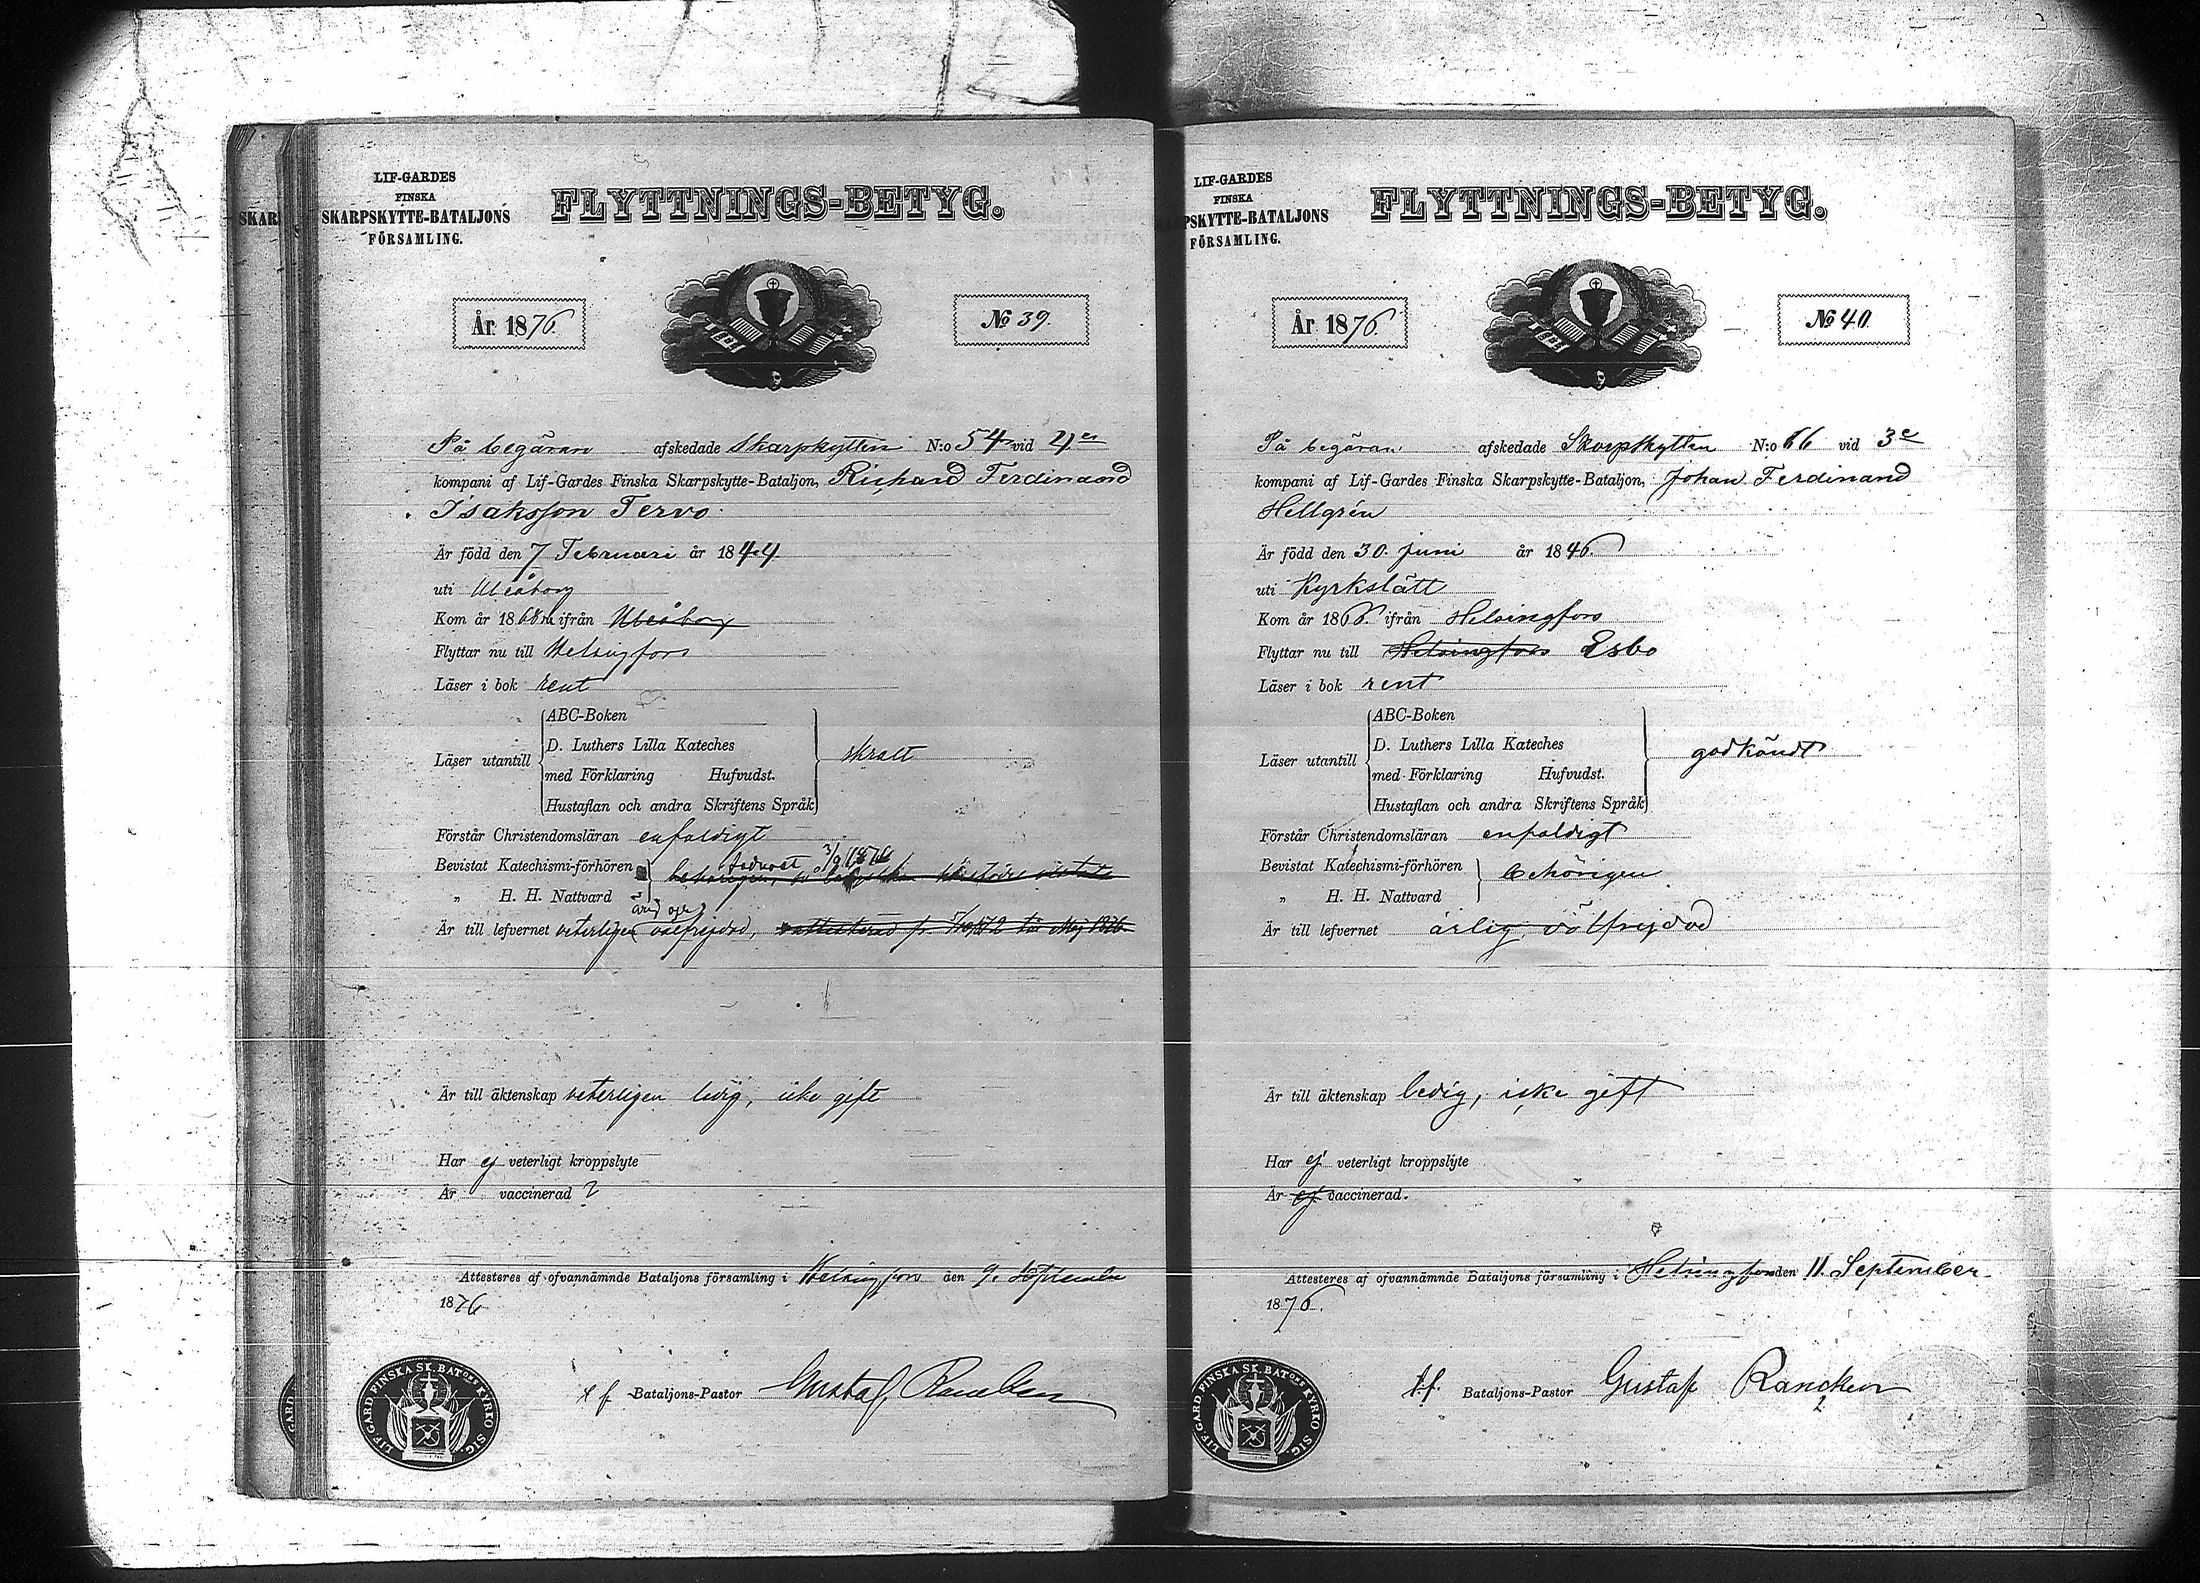 SKAR
LIF-GARDES
FINSKA
SKARPSKYTTE-BATALJONS
FÖRSAMLING.
FLYTTNINGS-BETYG.
År 1876.
No 39.
På begäran afskedade Skarpskytten N:o 54 vid 4de
kompani af Lif-Gardes Finska Skarpskytte-Bataljon, Richard Ferdinand
Isaksson Tervo.
Är född den 7 Februari år 1844
uti Uleåborg
Kom år 1868 ifrån Uleåborg
Flyttar nu till Helsingfors
Läser i bok rent
ABC-Boken
D. Luthers Lilla Kateches
Läser utantill
med Förklaring Hufvudst.
Hustaflan och andra Skriftens Språk
skralt
Förstår Christendomsläran enfaldigt
Bevistat Katechismi-förhören
3/9 1876
„ H. H. Nattvard
Är till lefvernet veterligen välfrejdad,
Är till äktenskap veterligen ledig, icke gift
Har ej veterligt kroppslyte
Är vaccinerad ?
Attesteres af ofvannämnde Bataljons församling i Helsingfors den 9. September
1876
t f Bataljons-Pastor Gustaf Rancken
LIF-GARD. FINSKA SK. BAT:ONS KYRKO SIG.
LIF-GARDES
FINSKA
PSKYTTE-BATALJONS
FÖRSAMLING.
FLYTTNINGS-BETYG.
År 1876.
No 40.
På begäran afskedade Skarpskytten N:o 66 vid 3e
kompani af Lif-Gardes Finska Skarpskytte-Bataljon, Johan Ferdinand
Hellgrén
Är född den 30. Juni år 1846.
uti Kyrkslätt
Kom år 186 ifrån Helsingfors
Flyttar nu till Helsingfors Esbo
Läser i bok rent
ABC-Boken
D. Luthers Lilla Kateches
Läser utantill
med Förklaring Hufvudst.
Hustaflan och andra Skriftens Språk
godkändt
Förstår Christendomsläran enfaldigt
Bevistat Katechismi-förhören
behörigen
„ H. H. Nattvard
Är till lefvernet ärlig, välfrejdad
Är till äktenskap ledig, icke gift
Har ej veterligt kroppslyte
Är ej vaccinerad.
Attesteres af ofvannämnde Bataljons församling i Helsingfors den 11. September
1876.
t.f. Bataljons-Pastor Gustaf Rancken
LIF-GARD FINSKA SK. BAT:ONS KYRKO SIG.